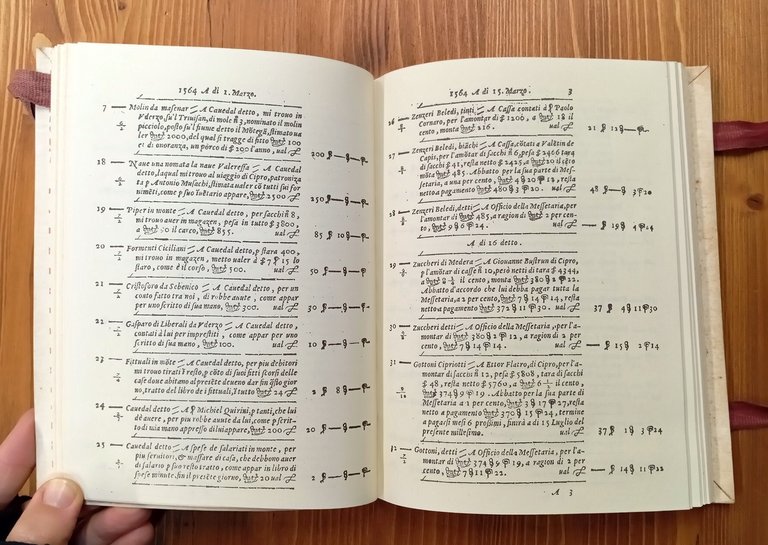 1564 A di 1. Marzo.
7 Molin da masenar A Cauedal detto, mi trouo in
Vderzo, su'l Triuisan, di mole ñ 3, nominato il molin
picciolo, posto su'l fiume detto il Mõtegã, stimato ua
ler 2000, del qual si tragge di fitto 100
et di onoranza, un porco di $ 200 l'anno, ual 200
18 Naue una nomata la naue Valeressa A Cauedal
detto, la qual mi trouo al uiaggio di Cipro, patroniza
ta p Antonio Musachi, stimata ualer cõ tutti sui for
nimẽti, come p suo īuẽtario appare, 2500 250
19 Piper in monte A Cauedal detto, per sacchi ñ 8,
mi trouo auer in magazen, pesa in tutto $ 3800,
a il carco, 855. ual 85 10
20 Formenti Ciciliani A Cauedal detto, p stara 400,
mi trouo in magazen, metto ualer à $ 7 15 lo
staro, come è il corso, 500. ual 50
21 Cristoforo da Sebenico A Cauedal detto, per un
conto fatto tra noi, di robbe auute, come appar
per uno scritto di sua mano, 300. ual 30
22 Gasparo di Liberali da Vderzo A Cauedal detto,
contati à lui per imprestiti, come appar per uno
scritto di sua mano, 100. ual 10
23 Fittuali in mõte A Cauedal detto, per piu debitori
mi trouo tirati î resto, p cõto di suoi fitti scorsi delle
case doue abitano al presẽte deueno dar fin q̃sto gior
no, tratto del libro de i fittuali, î tutto 24 2 8
24 Cauedal detto A Michiel Quirini, p tanti, che lui
dè auere, per piu robbe auute da lui, come p scrit-
to di mia mano appresso di lui appare, 200 20
25 Cauedal detto A spese de salariati in monte, per
piu seruitori, & massare di casa, che debbono auer
di salario p suo resto tratto, come appar in libro di
spese minute, fin il presẽte giorno, 20 ual 2
1564 A di 15. Marzo. 3
26 Zenzeri Beledi, tinti A Cassa contati à Paolo
Cornaro, per l'amontar di $ 1200, a 18 il
cento, monta 216. ual 21 12
27 Zenzeri Beledi, biãchi A Cassa, cõtati a Valẽtin de
Capis, per l'amontar di sacchi ñ 6, pesa $ 2466 tara
di sacchi $ 41, resta netto $ 2425, a 20 il cẽto
mõta 485. Abbatto per la sua parte di Mes-
setaria, a una per cento, 4 20 12, resta
netto a pagamento 480 3 20. ual 48 3 20
28 Zenzeri Beledi, detti A Officio della Messetaria, per
l'amontar di 485, a ragion di 2 per cen-
to, 9 16 24. ual 19 4 14
A di 16 detto.
29 Zuccheri di Medera A Giouanne Bustrun di Cipro,
p l'amõtar di casse ñ 10, però netti di tara $ 4344,
a 8 il cento, monta 380 2 12.
Abbatto d'accordo che lui debba pagar tutta la
Messetaria, a 2 per cento, 7 14 14, resta
netto a pagamento 372 11 30. ual 37 4 11 30
30 Zuccheri detti A Officio della Messetaria, per l'a-
montar di 380 2 12, a ragion di 2 per
cento, 7 14 14. ual 15 2 14
31 Gottoni Cipriotti A Ettor Flatro, di Cipro, per l'a-
montar di sacchi ñ 12, pesa $ 5808, tara di sacchi
$ 48, resta netto $ 5760, a 6 ½ il cento,
374 9 19. Abbatto per la sua parte di
Messetaria a 1 per cento, 3 17 27, resta
netto a pagamento 370 15 24, termine
a pagar si mesi 6 prossimi, finirà a di 15 Luglio del
presente millesimo. ual 37 1 3 24
32 Gottoni, detti A Officio della Messetaria, per l'a-
montar di 374 9 19, a ragion di 2 per
cento, 7 11 22. ual 14 11 22
A 3